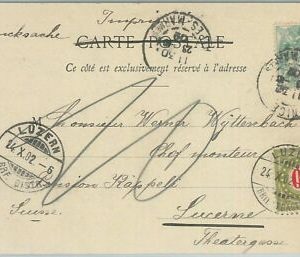 Imprimé
Drucksache
CARTE POSTALE
Ce côté est exclusivement réservé à l'adresse
LUZERN
24.X.02.-6
Monsieur Werner Wyttenbach
Chef monteur
Pension Käppeli
Suisse.
Lucerne
Theatergasse